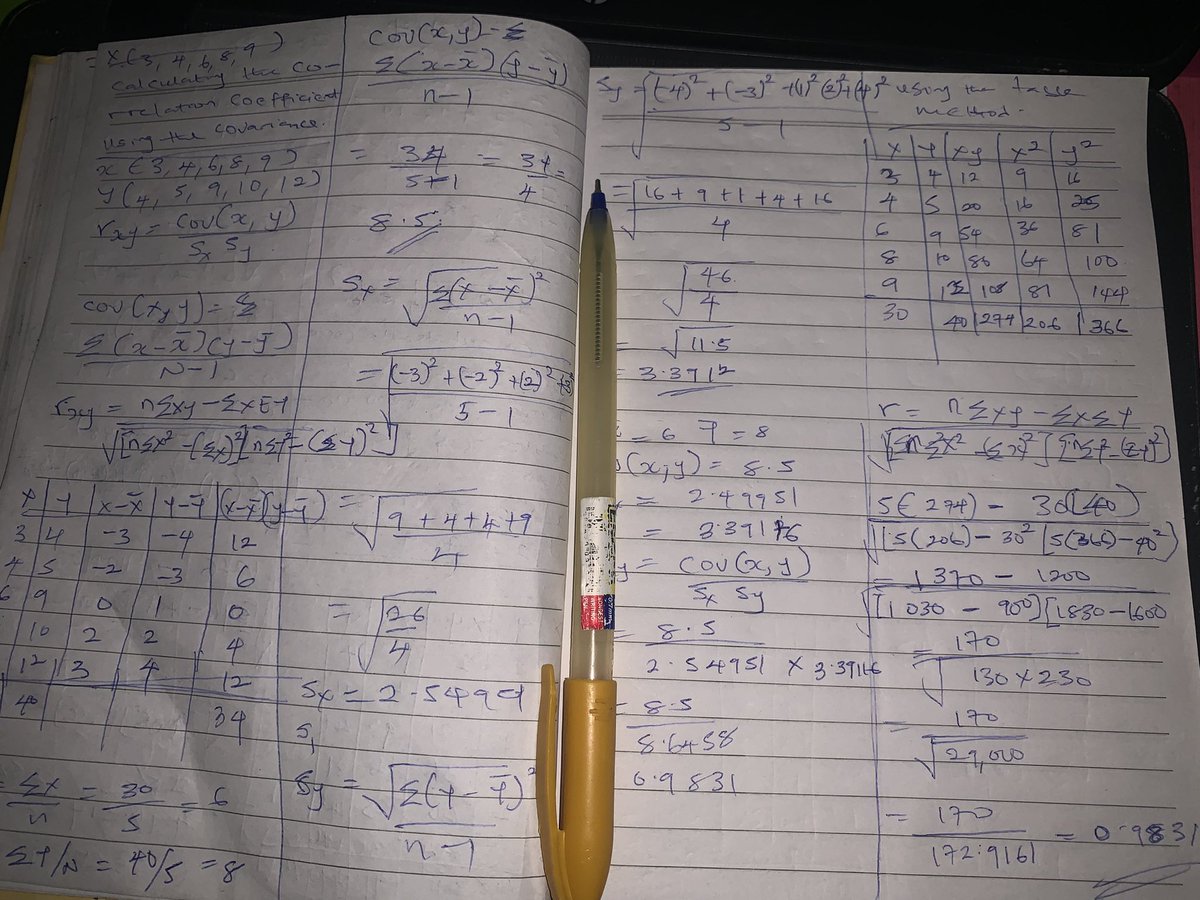 x(3, 4, 6, 8, 9)
Calculating the co-
rrelation coefficient
using the covariance.
x(3, 4, 6, 8, 9)
y(4, 5, 9, 10, 12)
rxy = cov(x, y)
Sx Sy
cov(x, y) = Σ
Σ(x-x̄)(y-ȳ)
N-1
rxy = nΣxy-ΣxΣy
√[nΣx²-(Σx)²][nΣy²-(Σy)²]
x y x-x̄ y-ȳ (x-x̄)(y-ȳ)
3 4 -3 -4 12
4 5 -2 -3 6
6 9 0 1 0
10 2 2 4
12 3 4 12
40 34
= Σx/n = 30/5 = 6
ΣY/N = 40/5 = 8
cov(x, y) - Σ
Σ(x-x̄)(y-ȳ)
n-1
= 34/5-1 = 34/4 =
8.5
Sx = √Σ(x-x̄)²
n-1
= √(-3)²+(-2)²+(2)²+3
5-1
= √9+4+4+9
4
= √26/4
Sx = 2.549
S
Sy = √Σ(y-ȳ)²
n-1
Sy = √(-4)²+(-3)²+(1)²(2)²+(4)²
5-1
= √16+9+1+4+16
4
√46/4
= √11.5
= 3.3912
= 6 ȳ = 8
(x,y) = 8.5
= 2.49951
= 3.39116
y = cov(x, y)
Sx Sy
= 8.5
2.54951 x 3.39116
= 8.5
8.6458
0.9831
using the table
method.
x y xy x² y²
3 4 12 9 16
4 5 20 16 25
6 9 54 36 81
8 10 80 64 100
9 12 108 81 144
30 40 274 206 366
r = nΣxy-ΣxΣy
√[nΣx²-(Σx)²][nΣy²-(Σy)²]
5(274) - 30(40)
√[5(206)-30² [5(366)-40²)
= 1370 - 1200
√[1030-900][1830-1600
= 170
√130x230
= 170
√29,000
= 170
172.9161
= 0.9831